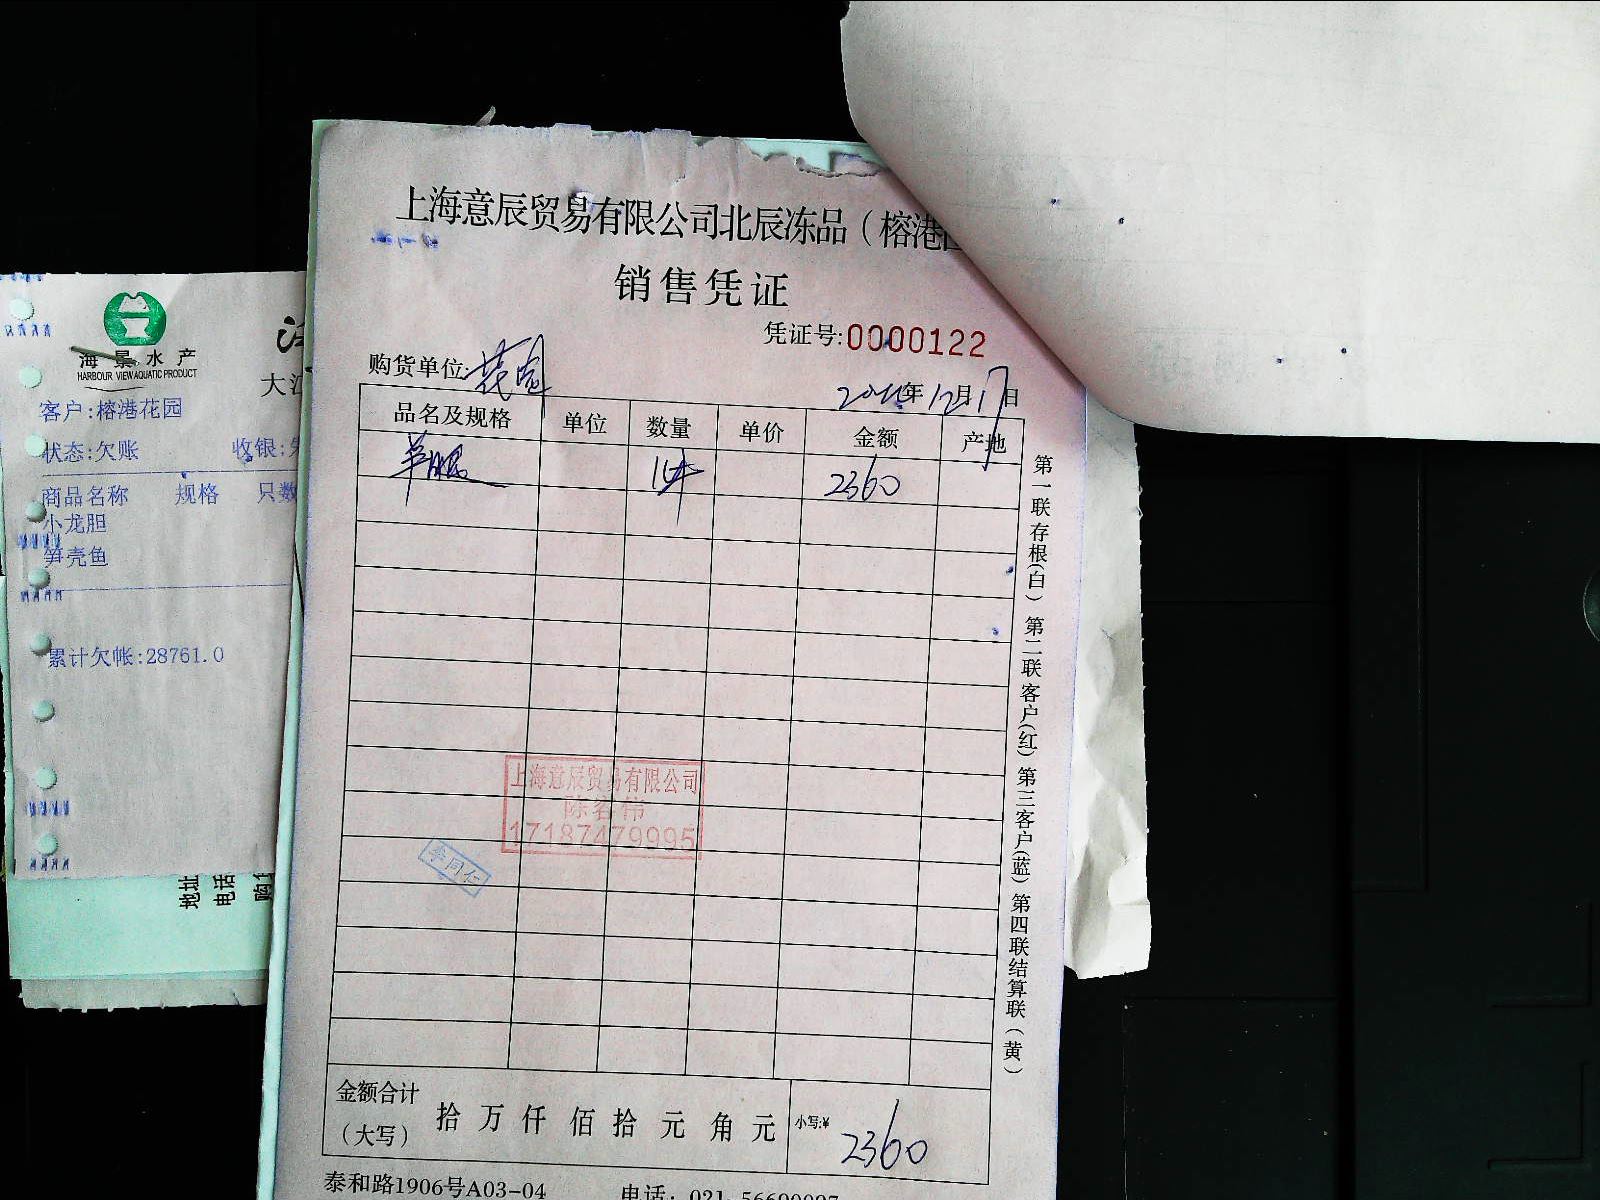 上海意辰贸易有限公司北辰冻品（榕港
销售凭证
凭证号:0000122
购货单位:花园
年12月17日
品名及规格 单位 数量 单价 金额 产地
羊腿 1件 2360
第一联存根(白) 第二联客户(红) 第三客户(蓝) 第四联结算联(黄)
上海意辰贸易有限公司
17187479995
李同仁
金额合计
（大写） 拾 万 仟 佰 拾 元 角 元 小写:¥ 2360
泰和路1906号A03-04 电话: 021-
海景水产
HARBOUR VIEW AQUATIC PRODUCT
客户:榕港花园
状态:欠账 收银:
商品名称 规格 只数
小龙胆
笋壳鱼
累计欠帐:28761.0
地址
电话